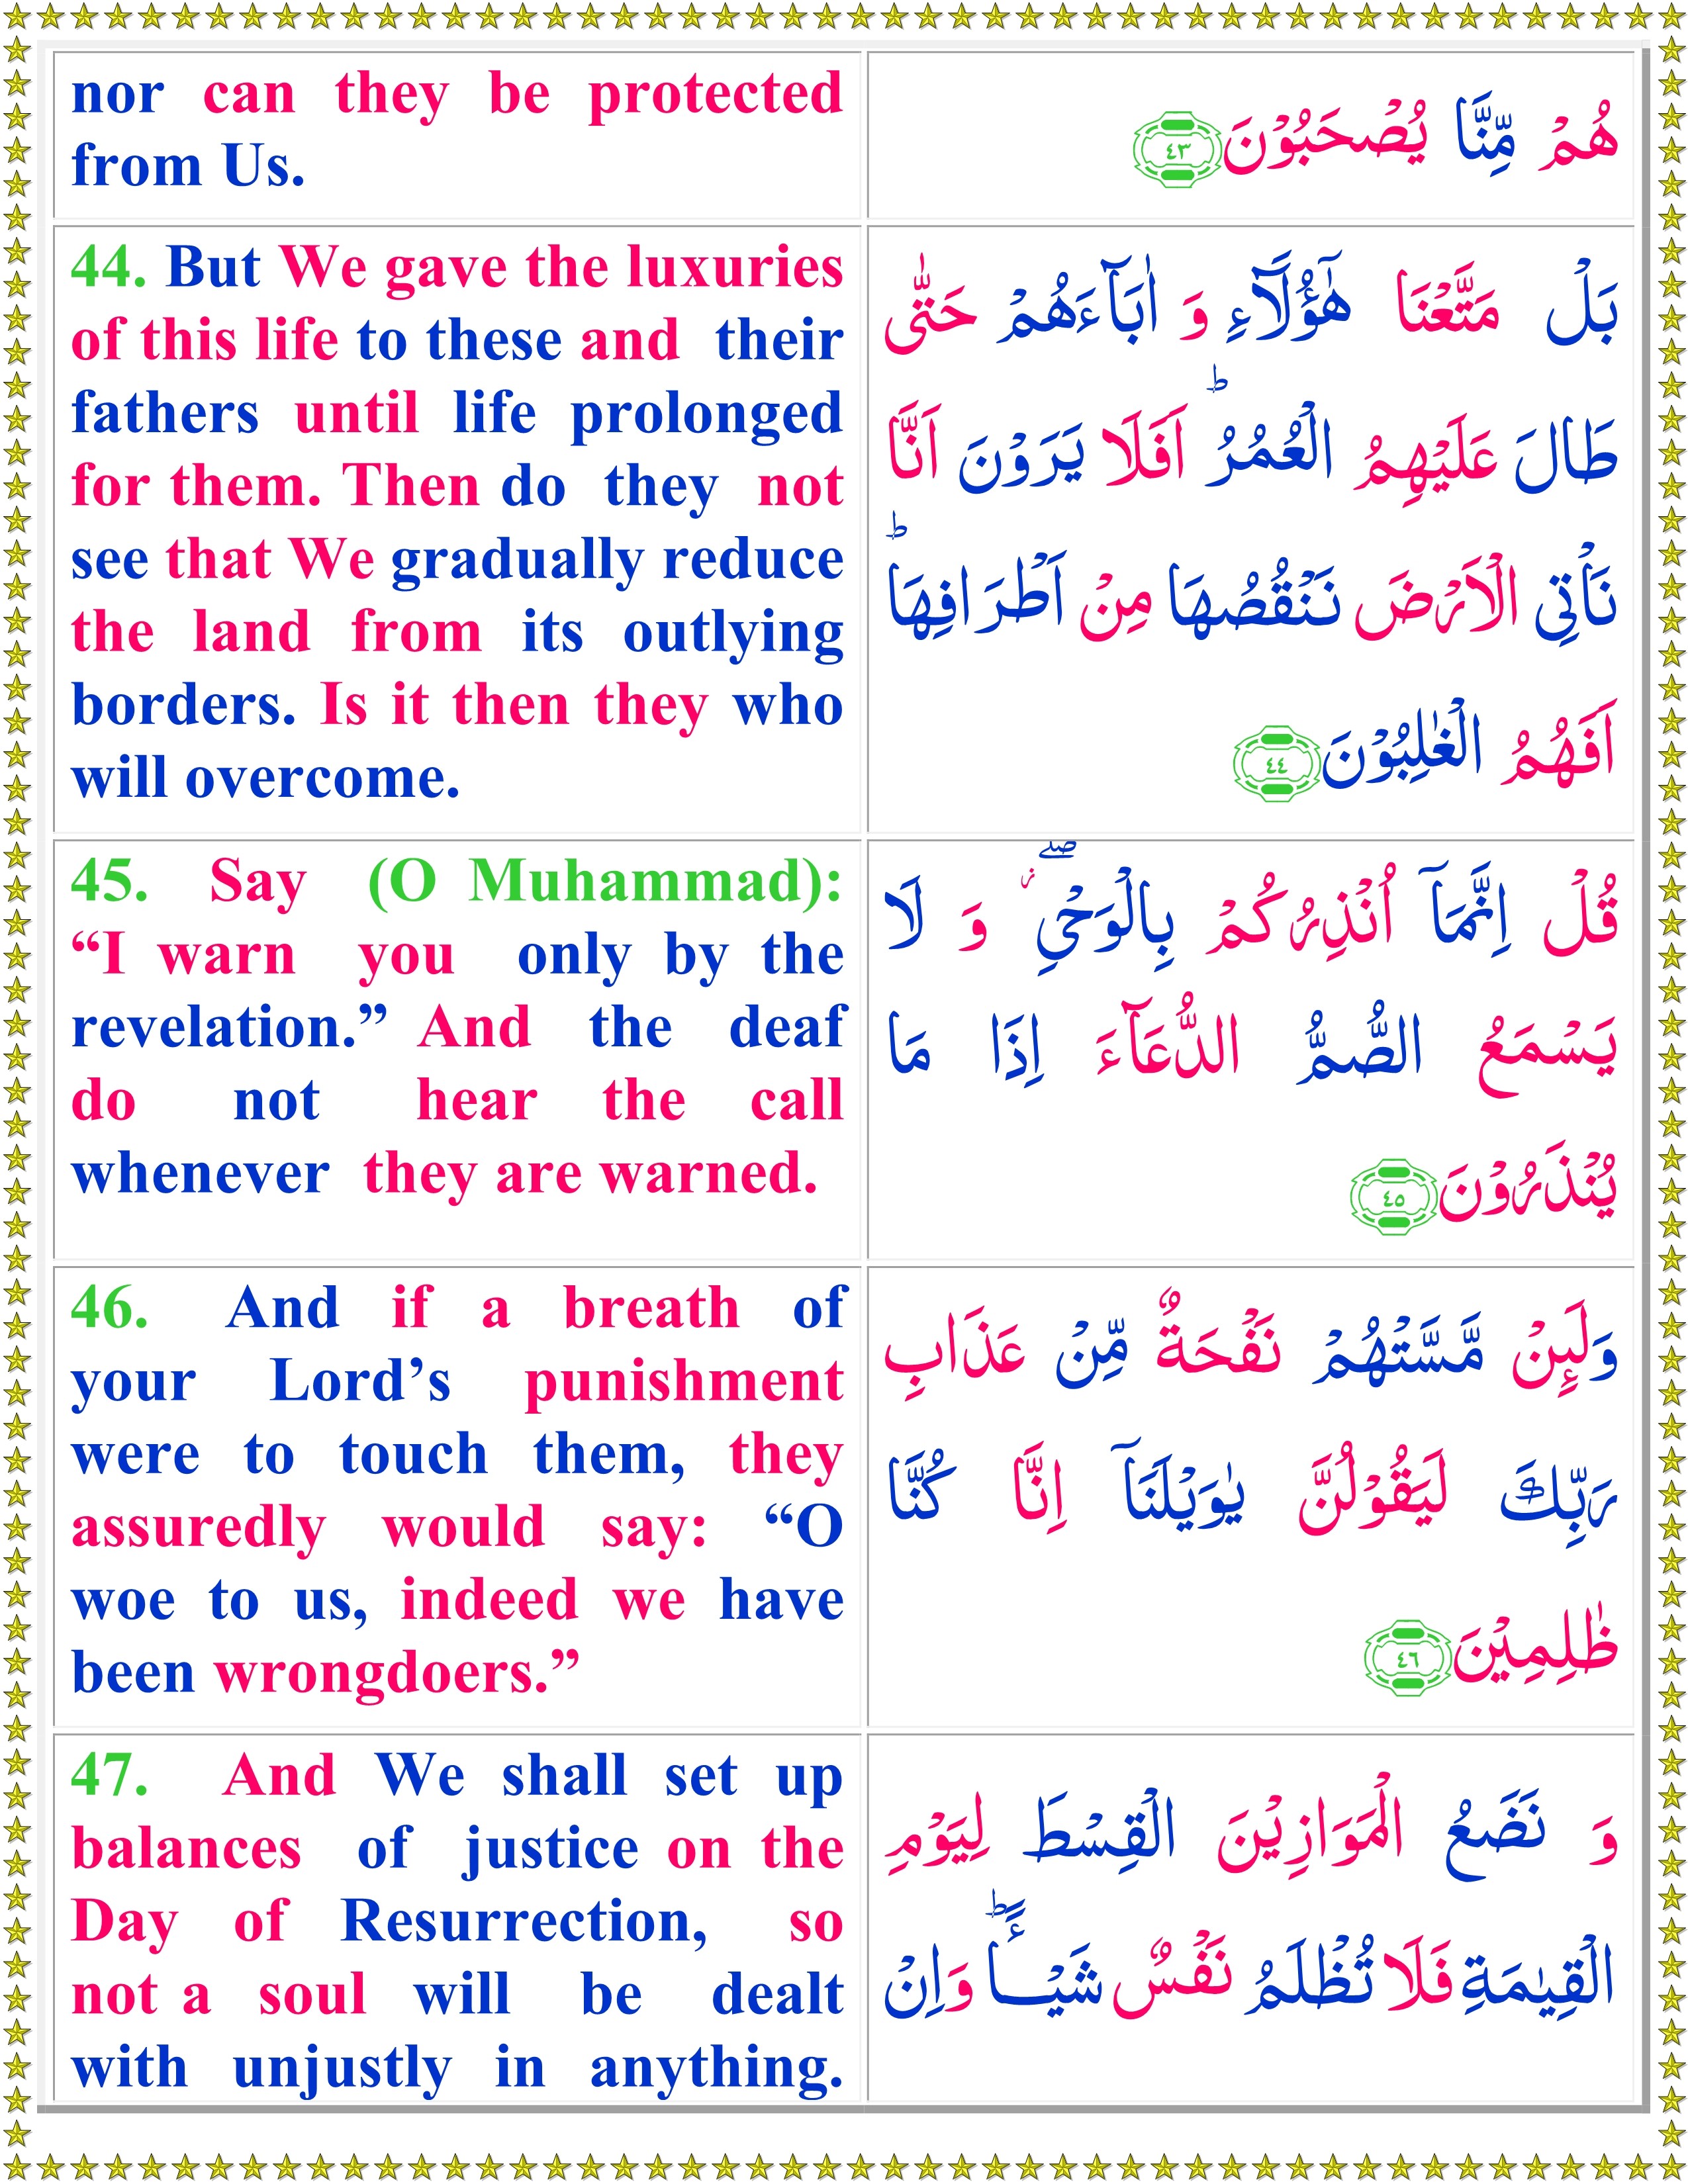 nor can they be protected
from Us.
هُمْ مِّنَّا يُصْحَبُوْنَ ٤٣
44. But We gave the luxuries
of this life to these and their
fathers until life prolonged
for them. Then do they not
see that We gradually reduce
the land from its outlying
borders. Is it then they who
will overcome.
بَلْ مَتَّعْنَا هٰٓؤُلَآءِ وَ اٰبَآءَهُمْ حَتّٰى
طَالَ عَلَيْهِمُ الْعُمُرُ ؕ اَفَلَا يَرَوْنَ اَنَّا
نَاْتِى الْاَرْضَ نَنْقُصُهَا مِنْ اَطْرَافِهَا ؕ
اَفَهُمُ الْغٰلِبُوْنَ ٤٤
45. Say (O Muhammad):
“I warn you only by the
revelation.” And the deaf
do not hear the call
whenever they are warned.
قُلْ اِنَّمَاۤ اُنْذِرُكُمْ بِالْوَحْىِ ۖ ز وَ لَا
يَسْمَعُ الصُّمُّ الدُّعَآءَ اِذَا مَا
يُنْذَرُوْنَ ٤٥
46. And if a breath of
your Lord’s punishment
were to touch them, they
assuredly would say: “O
woe to us, indeed we have
been wrongdoers.”
وَلَٮِٕنْ مَّسَّتْهُمْ نَفْحَةٌ مِّنْ عَذَابِ
رَبِّكَ لَيَقُوْلُنَّ يٰوَيْلَنَاۤ اِنَّا كُنَّا
ظٰلِمِيْنَ ٤٦
47. And We shall set up
balances of justice on the
Day of Resurrection, so
not a soul will be dealt
with unjustly in anything.
وَ نَضَعُ الْمَوَازِيْنَ الْقِسْطَ لِيَوْمِ
الْقِيٰمَةِ فَلَا تُظْلَمُ نَفْسٌ شَيْـــًٔا ؕ وَاِنْ